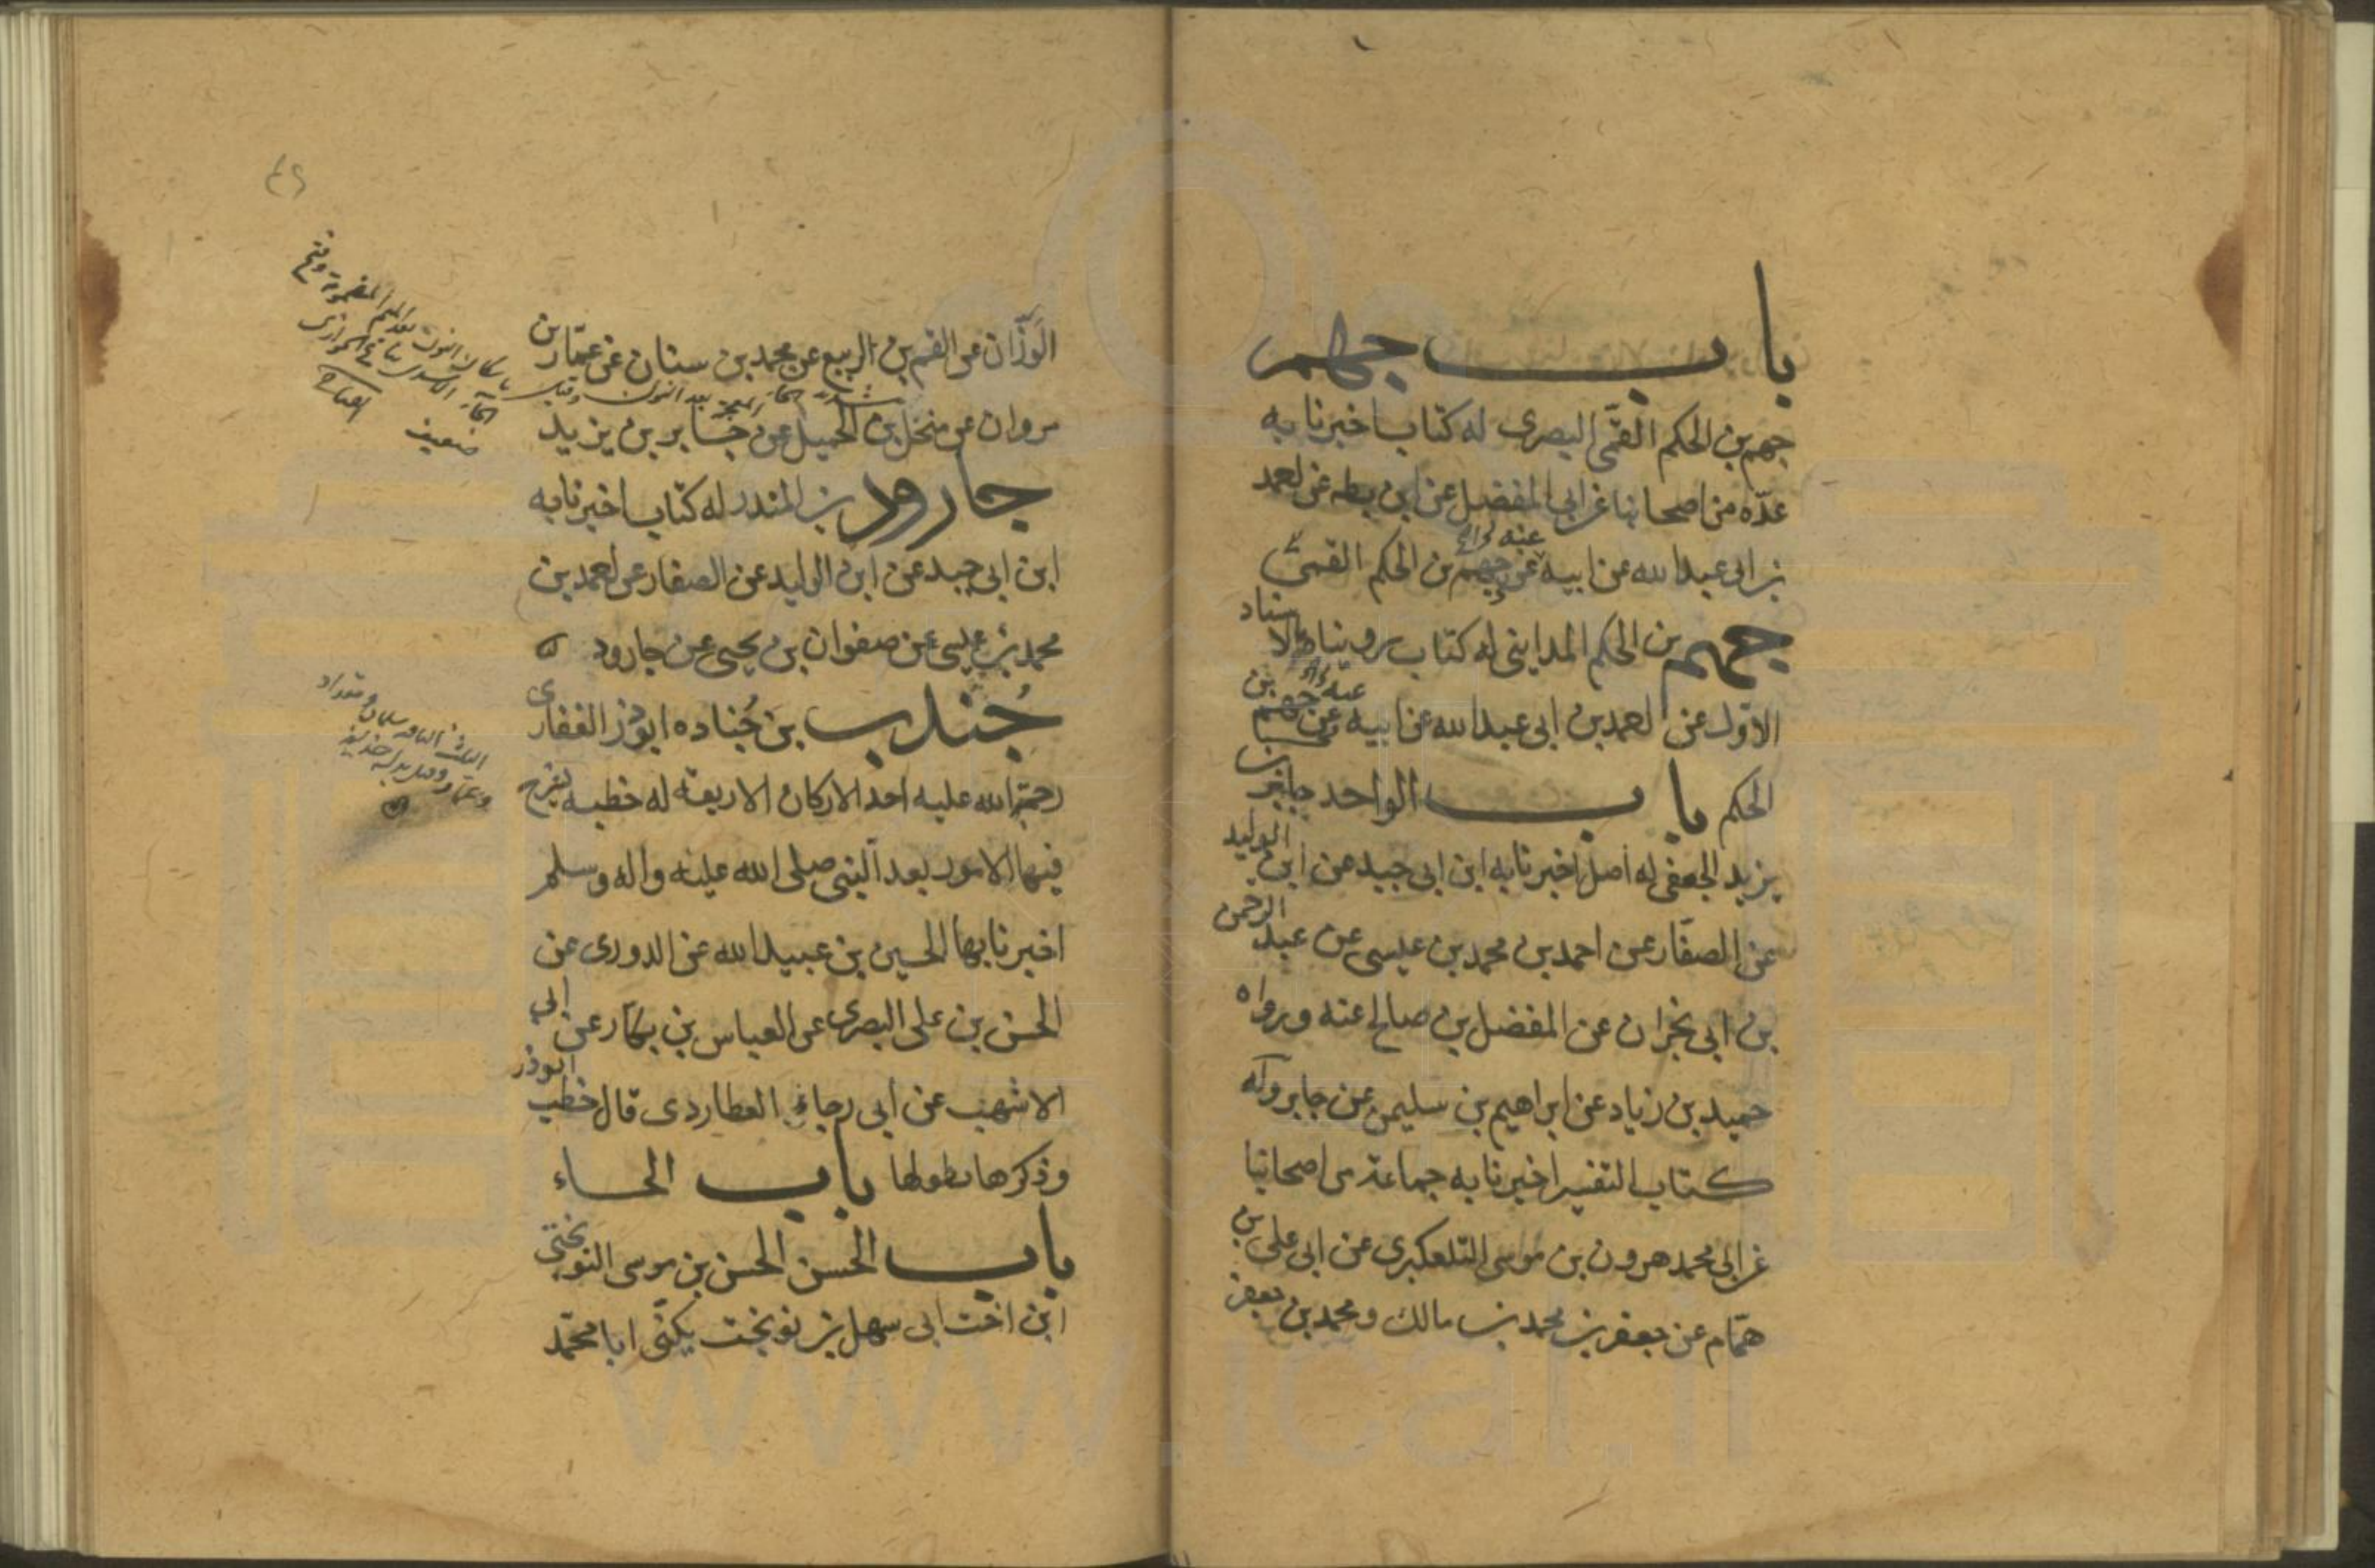 باب جهم
جهم بن الحكم القمّى البصرى له كتاب اخبرنا به
عدّه من اصحابنا عن ابى المفضل عن ابن بطه عن احمد
بن ابى عبدالله عن ابيه عن جهم بن الحكم القمى
عنه
جهم بن الحكم المداينى له كتاب رويناه بالاسناد
الاوّل عن احمد بن ابى عبدالله عن ابيه عن جهم بن
الحكم باب الواحد جابر بن
يزيد الجعفى له اصل اخبرنا به ابن ابى جيد عن ابن الوليد
عن الصفّار عن احمد بن محمد بن عيسى عن عبد الرحمن
بن ابى نجران عن المفضل بن صالح عنه ورواه
حميد بن زياد عن ابراهيم بن سليمن عن جابر وله
كتاب التفسير اخبرنا به جماعة من اصحابنا
عن ابى محمد هرون بن موسى التلعكبرى عن ابى على بن
همّام عن جعفر بن محمد بن مالك ومحمد بن جعفر
٤٩
الوزّان عن القسم بن الربيع عن محمد بن سنان عن عمّار بن
مروان عن منخل بن الجميل عن جابر بن يزيد
جارود بن المنذر له كتاب اخبرنا به
ابن ابى جيد عن ابن الوليد عن الصفار عن احمد بن
محمد بن عيسى عن صفوان بن يحيى عن جارود
جُندب بن جُناده ابوذر الغفارى
رحمة الله عليه احد الاركان الاربعة له خطبه يشرح
فيها الامور بعد النبى صلى الله عليه واله وسلم
اخبرنا بها الحسين بن عبيدالله عن الدورى عن
الحسن بن على البصرى عن العباس بن بكّار عن ابى
الاشهب عن ابى رجاء العطاردى قال خطب ابوذر
وذكرها بطولها باب الحاء
باب الحسن الحسن بن موسى النوبختى
ابن اخت ابى سهل بن نوبخت يكنّى ابا محمّد
بتشديد الخاء المعجمة بعد النون وقيل باسكان النون بعد الميم المضمومة وفتح
الخاء
ضعيف
الثلث الباقيه سلمان ومقداد
وعمّار وقيل بدله حذيفه